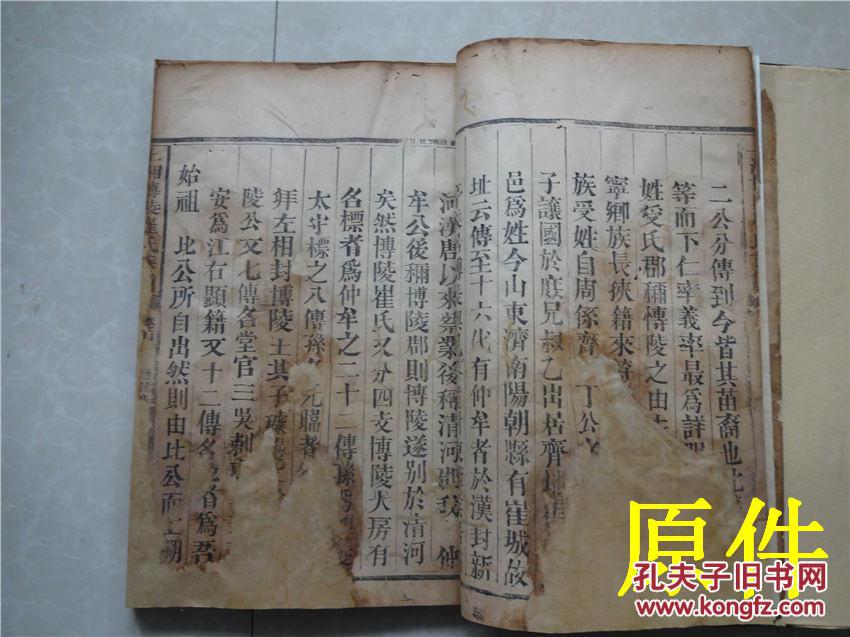 二公分傳到今皆其苗裔也
等而下仁率義率最為詳
姓受氏郡稱博陵之由
寧鄉族長挾籍來
族受姓自周係齊 丁公
子讓國於庶兄叔乙出居齊
邑為姓今山東濟南陽朝縣有崔城故
址云傳至十六代有仲牟者於漢封新
河漢唐以來榮業後稱清河 仲
牟公後稱博陵郡則博陵遂別於清河
矣然博陵崔氏又分四支博陵大房有
名標者為仲牟之二十二傳孫
太守標之八傳孫 元暐者
拜左相封博陵王其子璩
陵公又七傳名堂官三吳刺
安為江右顯籍又十二傳名 者為吾
始祖 比公所自出然則由比公而上朔
原件
孔夫子旧书网
www.kongfz.com